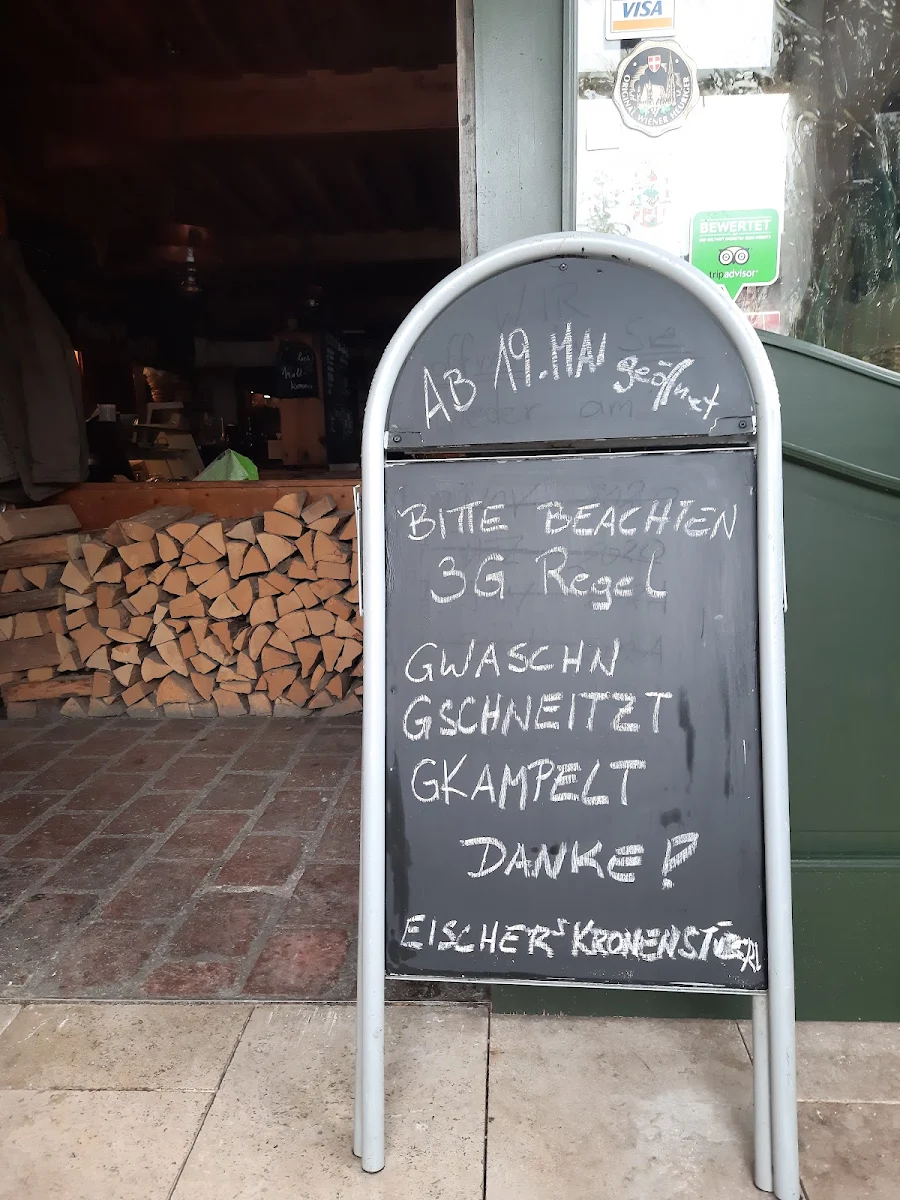 VISA
ORIGINAL WIENER HEURIGER
BEWERTET
tripadvisor
AB 19. MAI geöffnet
BITTE BEACHTEN
3G Regel
GWASCHN
GSCHNEITZT
GKAMPELT
DANKE!
EISCHER'S KRONENSTÜBERL